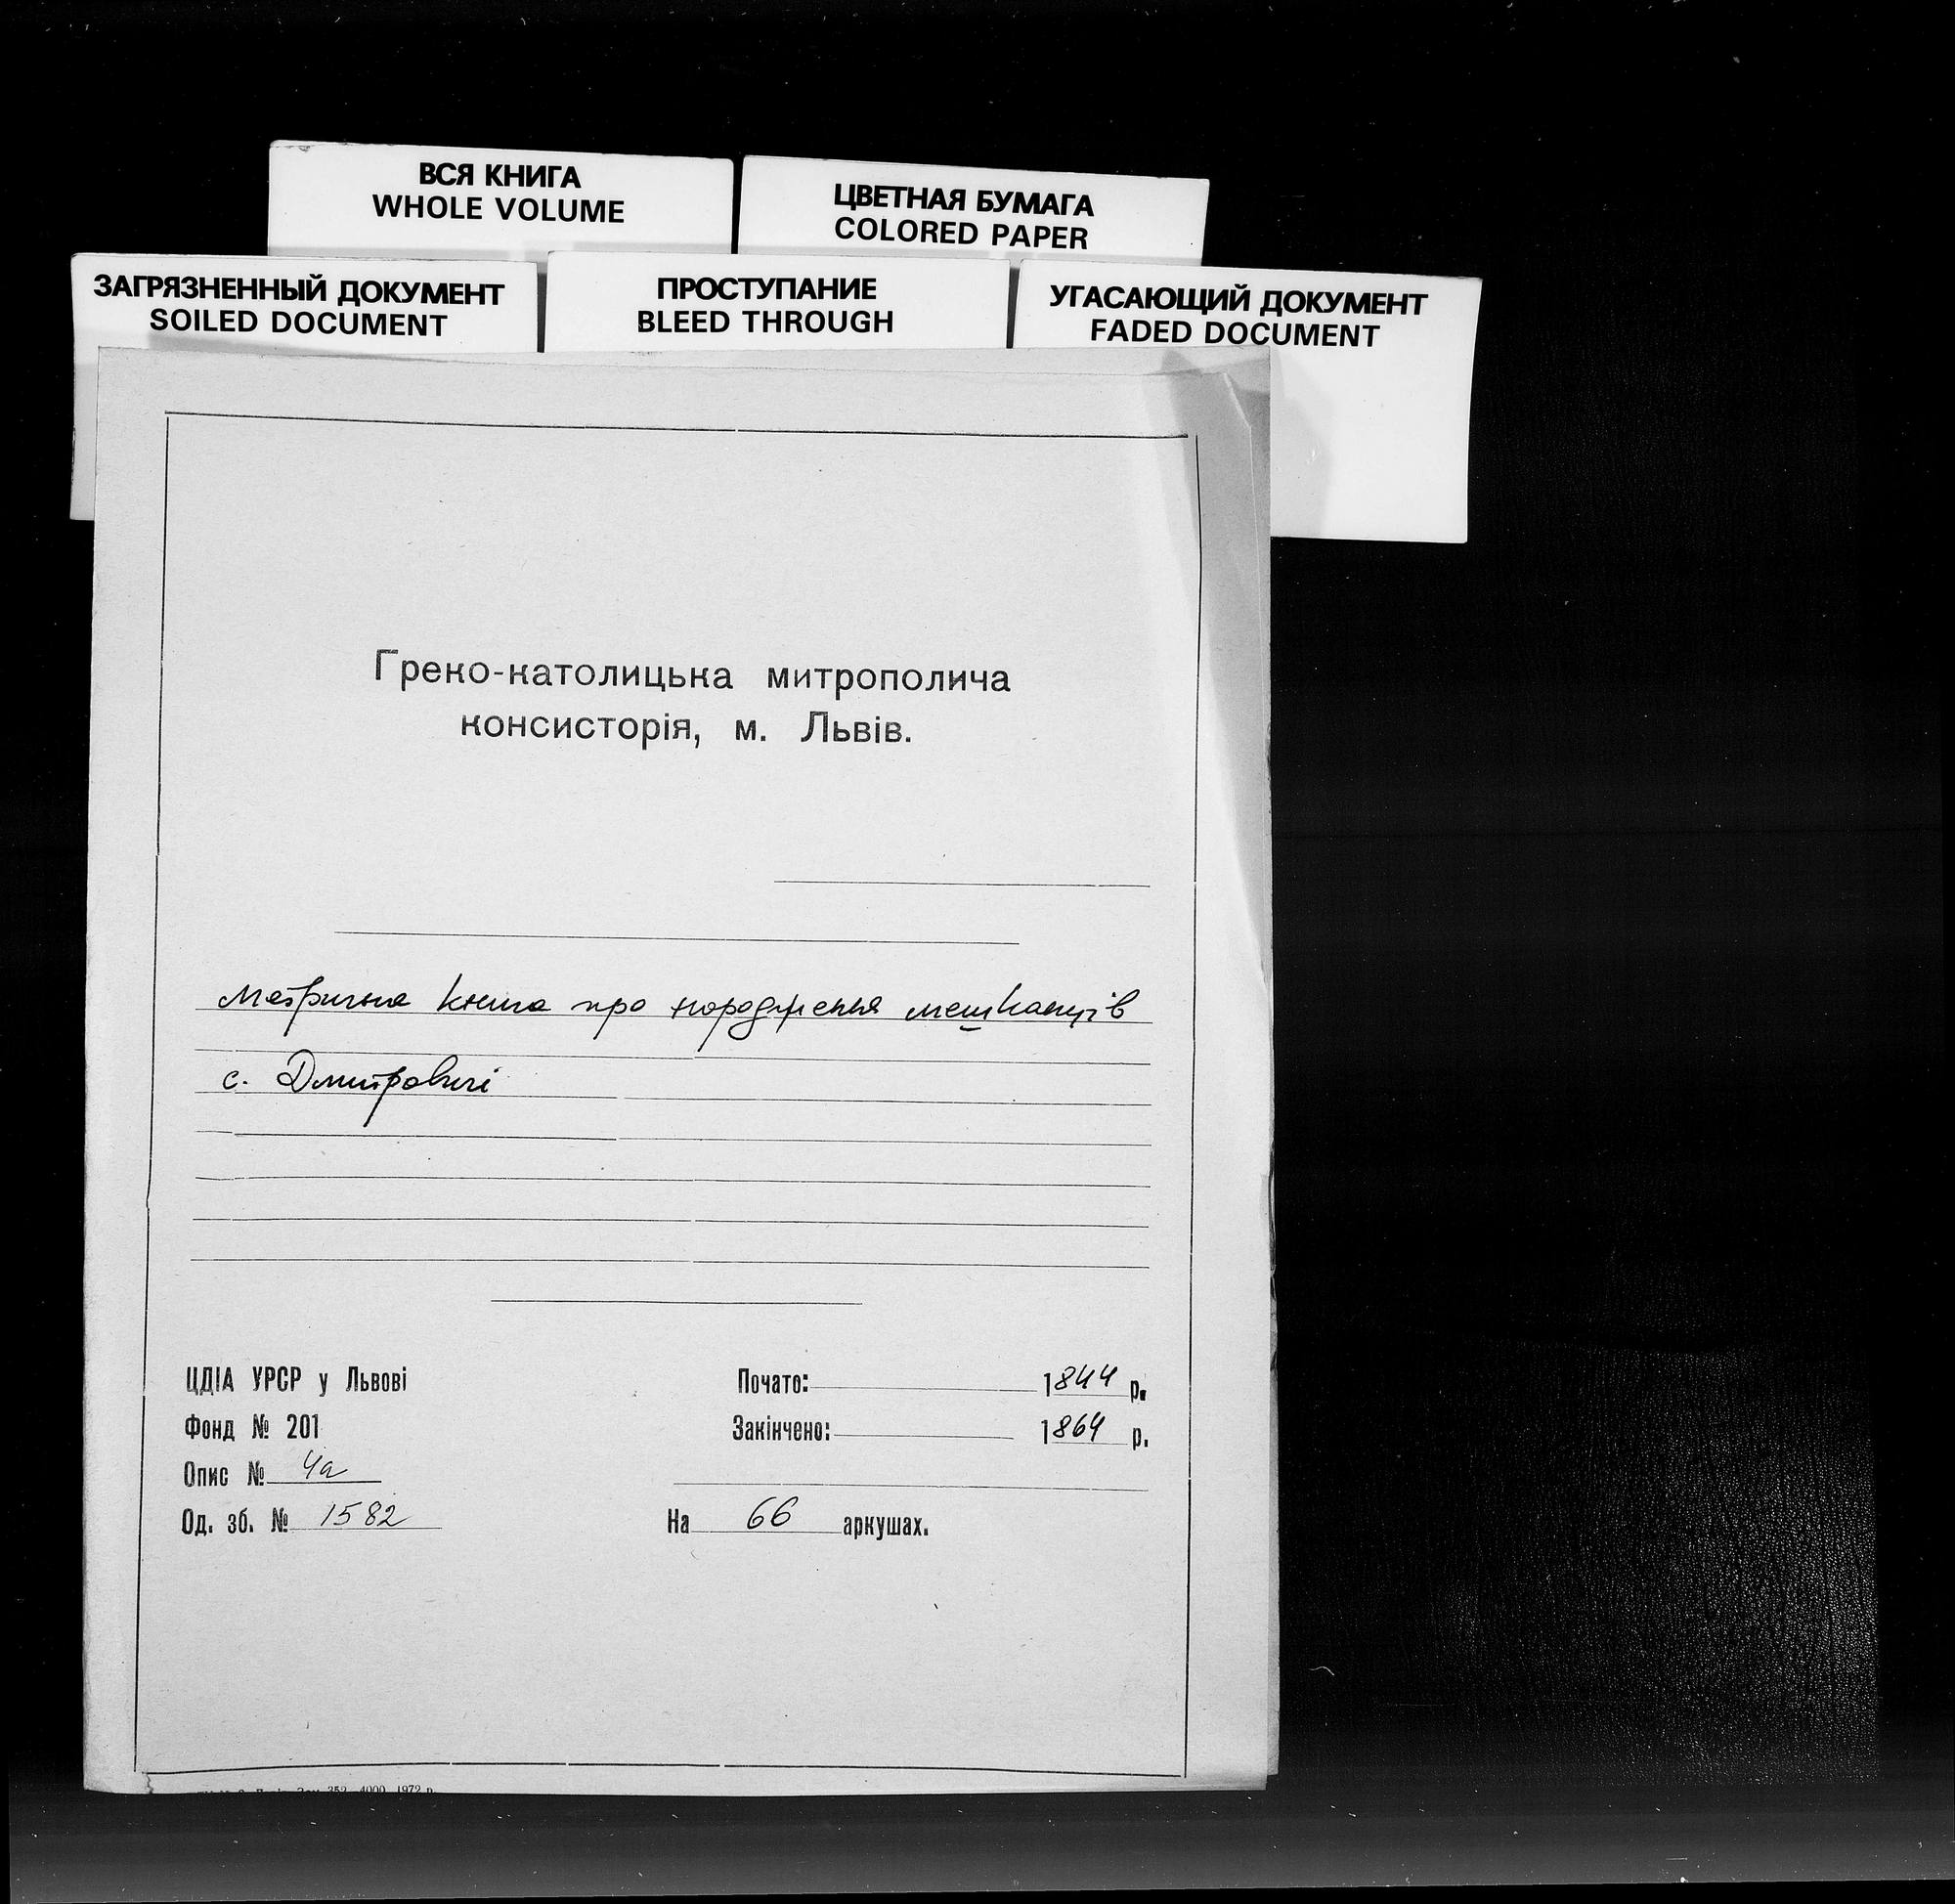 ВСЯ КНИГА
WHOLE VOLUME
ЦВЕТНАЯ БУМАГА
COLORED PAPER
ЗАГРЯЗНЕННЫЙ ДОКУМЕНТ
SOILED DOCUMENT
ПРОСТУПАНИЕ
BLEED THROUGH
УГАСАЮЩИЙ ДОКУМЕНТ
FADED DOCUMENT
Греко-католицька митрополича
консисторія, м. Львів.
Метрична книга про народження мешканців
с. Дмитровичі
ЦДІА УРСР у Львові
Фонд № 201
Опис № 4а
Од. зб. № 1582
Почато: 1844 р.
Закінчено: 1864 р.
На 66 аркушах.
352 4000 1972 р.